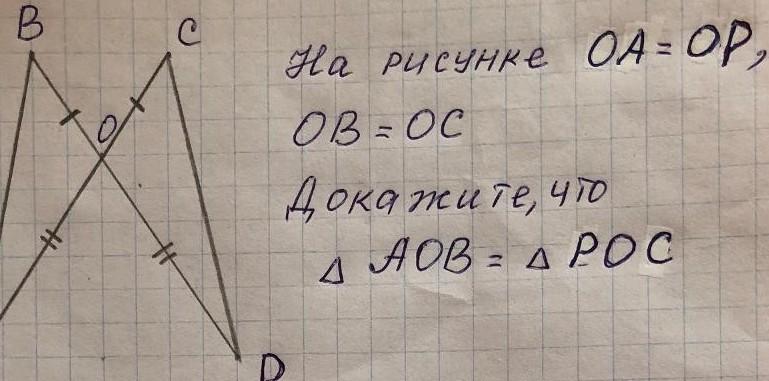 B
C
O
D
На рисунке OA = OP,
OB = OC
Докажите, что
△ AOB = △ POC